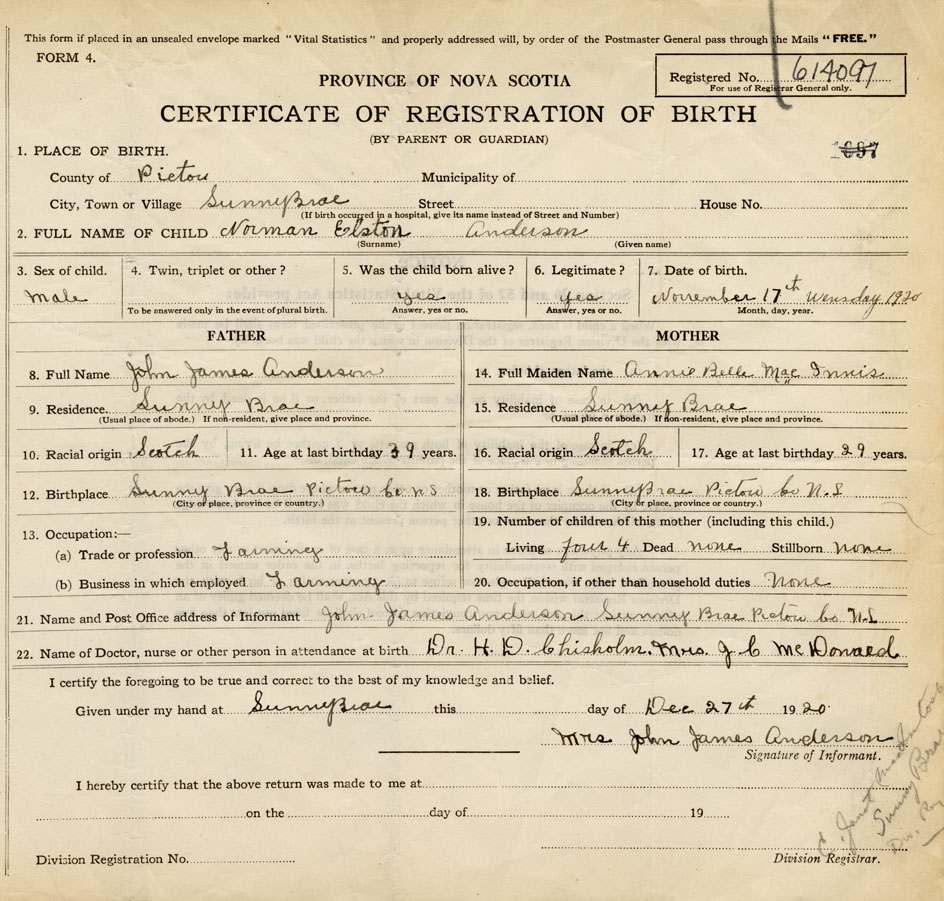 This form if placed in an unsealed envelope marked "Vital Statistics" and properly addressed will, by order of the Postmaster General pass through the Mails "FREE."
FORM 4.
Registered No. 614097
For use of Registrar General only.
PROVINCE OF NOVA SCOTIA
CERTIFICATE OF REGISTRATION OF BIRTH
(BY PARENT OR GUARDIAN)
1. PLACE OF BIRTH.
County of Pictou Municipality of
City, Town or Village SunnyBrae Street House No.
(If birth occurred in a hospital, give its name instead of Street and Number)
2. FULL NAME OF CHILD Norman Elston Anderson
(Surname) (Given name)
3. Sex of child. 4. Twin, triplet or other? 5. Was the child born alive? 6. Legitimate? 7. Date of birth.
Male yes yes November 17th Wensday 1920
To be answered only in the event of plural birth. Answer, yes or no. Answer, yes or no. Month, day, year.
FATHER MOTHER
8. Full Name John James Anderson 14. Full Maiden Name Annie Belle Mac Innis
9. Residence. Sunny Brae 15. Residence Sunny Brae
(Usual place of abode.) If non-resident, give place and province. (Usual place of abode.) If non-resident, give place and province.
10. Racial origin Scotch 11. Age at last birthday 39 years. 16. Racial origin Scotch 17. Age at last birthday 29 years.
12. Birthplace Sunny Brae Pictou Co N S 18. Birthplace SunnyBrae Pictou Co N.S
(City or place, province or country.) (City or place, province or country.)
13. Occupation:— 19. Number of children of this mother (including this child.)
(a) Trade or profession Farming Living four 4 Dead none Stillborn none
(b) Business in which employed Farming 20. Occupation, if other than household duties None
21. Name and Post Office address of Informant John James Anderson Sunny Brae Pictou Co N.S
22. Name of Doctor, nurse or other person in attendance at birth Dr. H. D. Chisholm. Mrs. J C McDonald
I certify the foregoing to be true and correct to the best of my knowledge and belief.
Given under my hand at SunnyBrae this day of Dec 27th 1920.
Mrs John James Anderson
Signature of Informant.
I hereby certify that the above return was made to me at
on the day of 19
Division Registration No. Division Registrar.
Sunny Brae